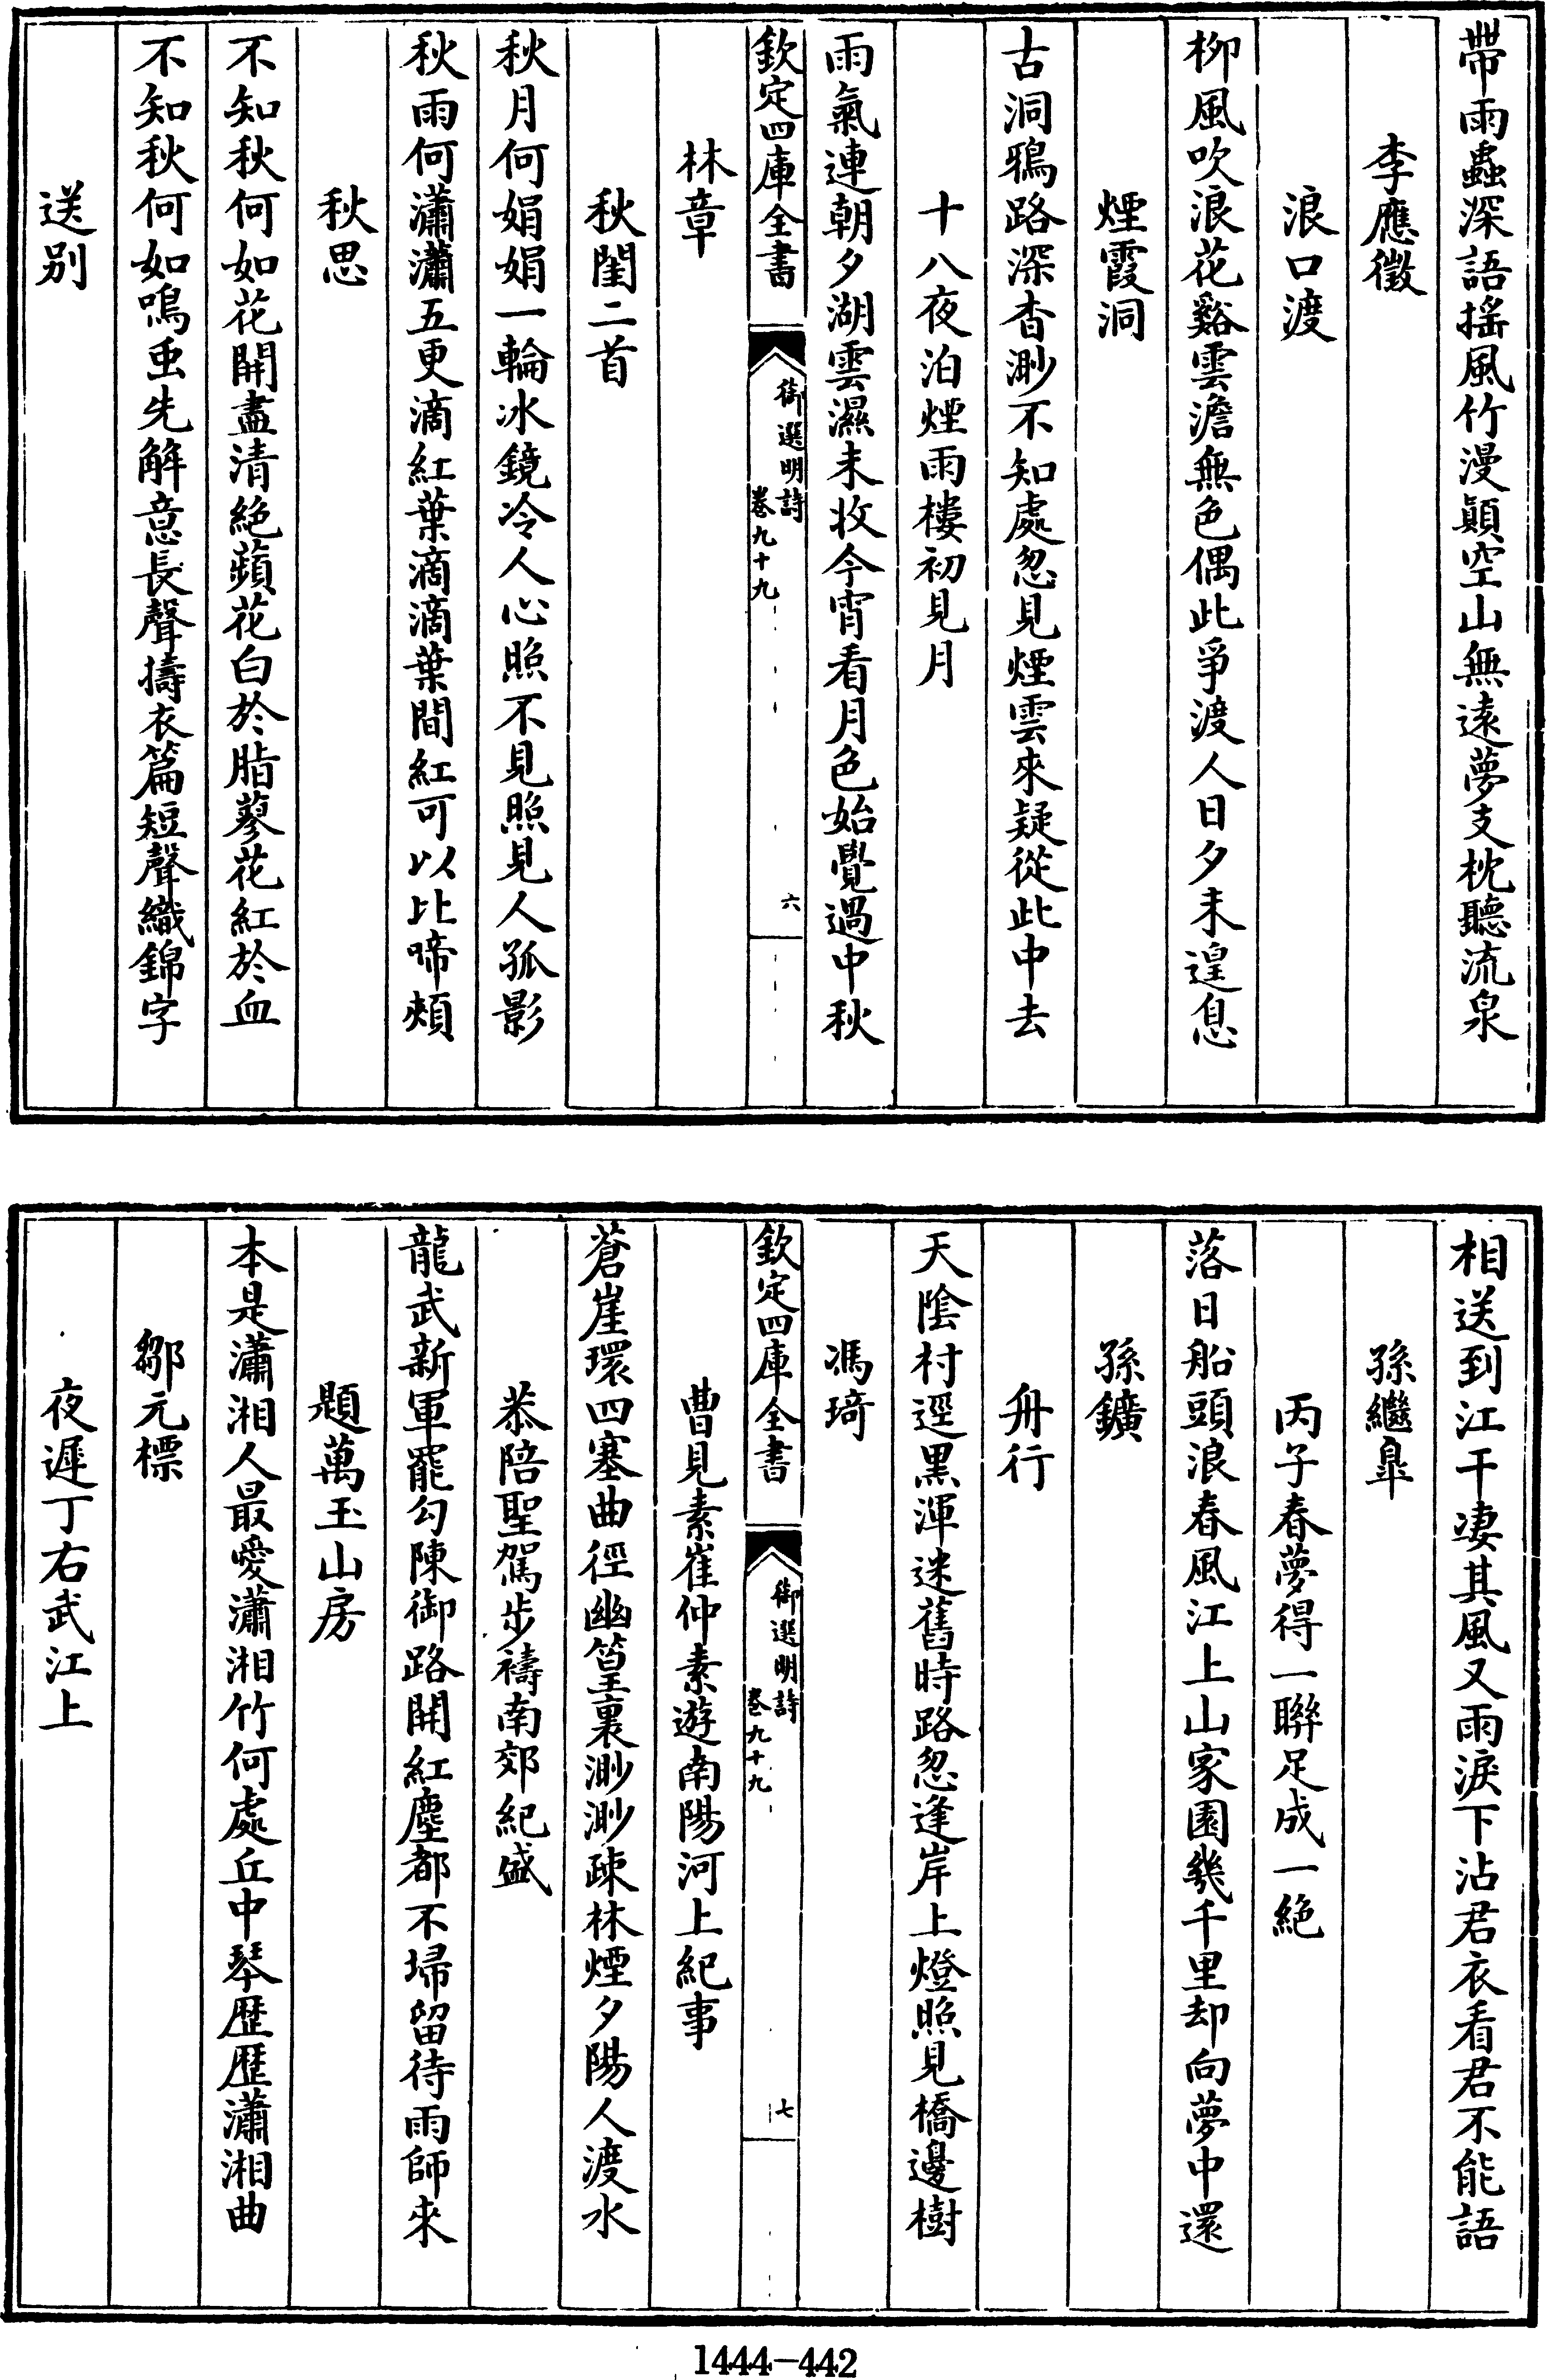 帶雨蟲深語揺風竹漫顛空山無遠夢支枕聽流泉
李應徵
浪口渡
柳風吹浪花谿雲澹無色偶此爭渡人日夕未遑息
煙霞洞
古洞鴉路深杳渺不知處忽見煙雲來疑從此中去
十八夜泊煙雨樓初見月
雨氣連朝夕湖雲濕未收今宵看月色始覺過中秋
欽定四庫全書
御選明詩
卷九十九
六
林章
秋閨二首
秋月何娟娟一輪冰鏡冷人心照不見照見人孤影
秋雨何瀟瀟五更滴紅葉滴滴葉間紅可以比啼頰
秋思
不知秋何如花開盡清絕蘋花白於脂蓼花紅於血
不知秋何如鳴䖝先解意長聲擣衣篇短聲織錦字
送別
相送到江干凄其風又雨淚下沾君衣看君不能語
孫繼皐
丙子春夢得一聯足成一絕
落日船頭浪春風江上山家園幾千里却向夢中還
孫鑛
舟行
天陰村逕黑渾迷舊時路忽逢岸上燈照見橋邊樹
馮琦
欽定四庫全書
御選明詩
卷九十九
七
曹見素崔仲素遊南陽河上紀事
蒼崖環四塞曲徑幽篁裏渺渺疎林煙夕陽人渡水
恭陪聖駕步禱南郊紀盛
龍武新軍罷勾陳御路開紅塵都不埽留待雨師來
題萬玉山房
本是瀟湘人最愛瀟湘竹何處丘中琴歷歷瀟湘曲
鄒元標
夜遲丁右武江上
1444-442